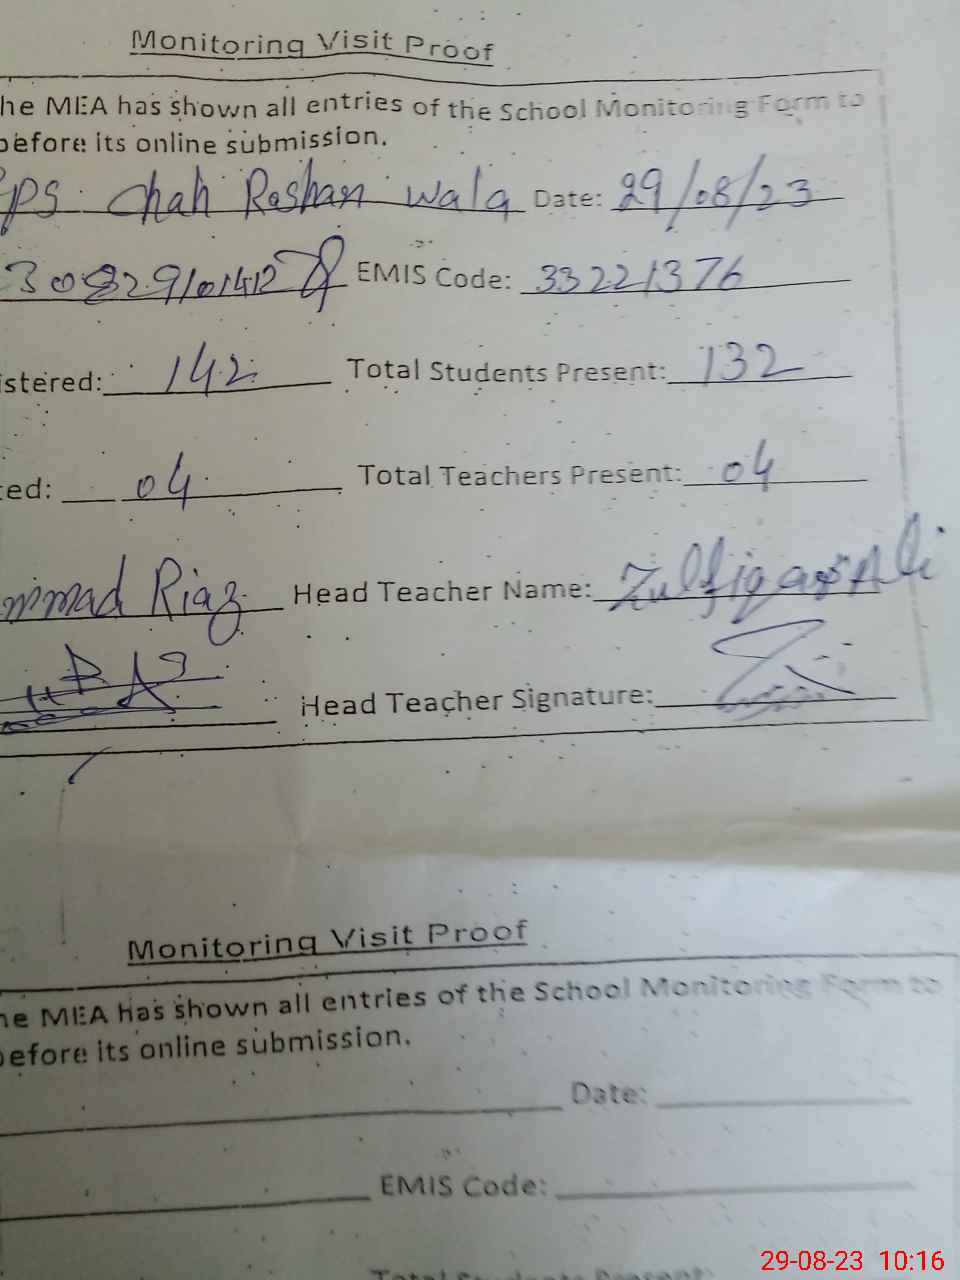 Monitoring Visit Proof
he MEA has shown all entries of the School Monitoring Form to
before its online submission.
GPS Chah Roshan Wala Date: 29/08/23
EMIS Code: 33221376
istered: 142 Total Students Present: 132
ted: 04 Total Teachers Present: 04
mmad Riaz Head Teacher Name: Zulfiqar Ali
Head Teacher Signature:
Monitoring Visit Proof
he MEA has shown all entries of the School Monitoring Form to
before its online submission.
Date:
EMIS Code:
Total Students Present:
29-08-23 10:16